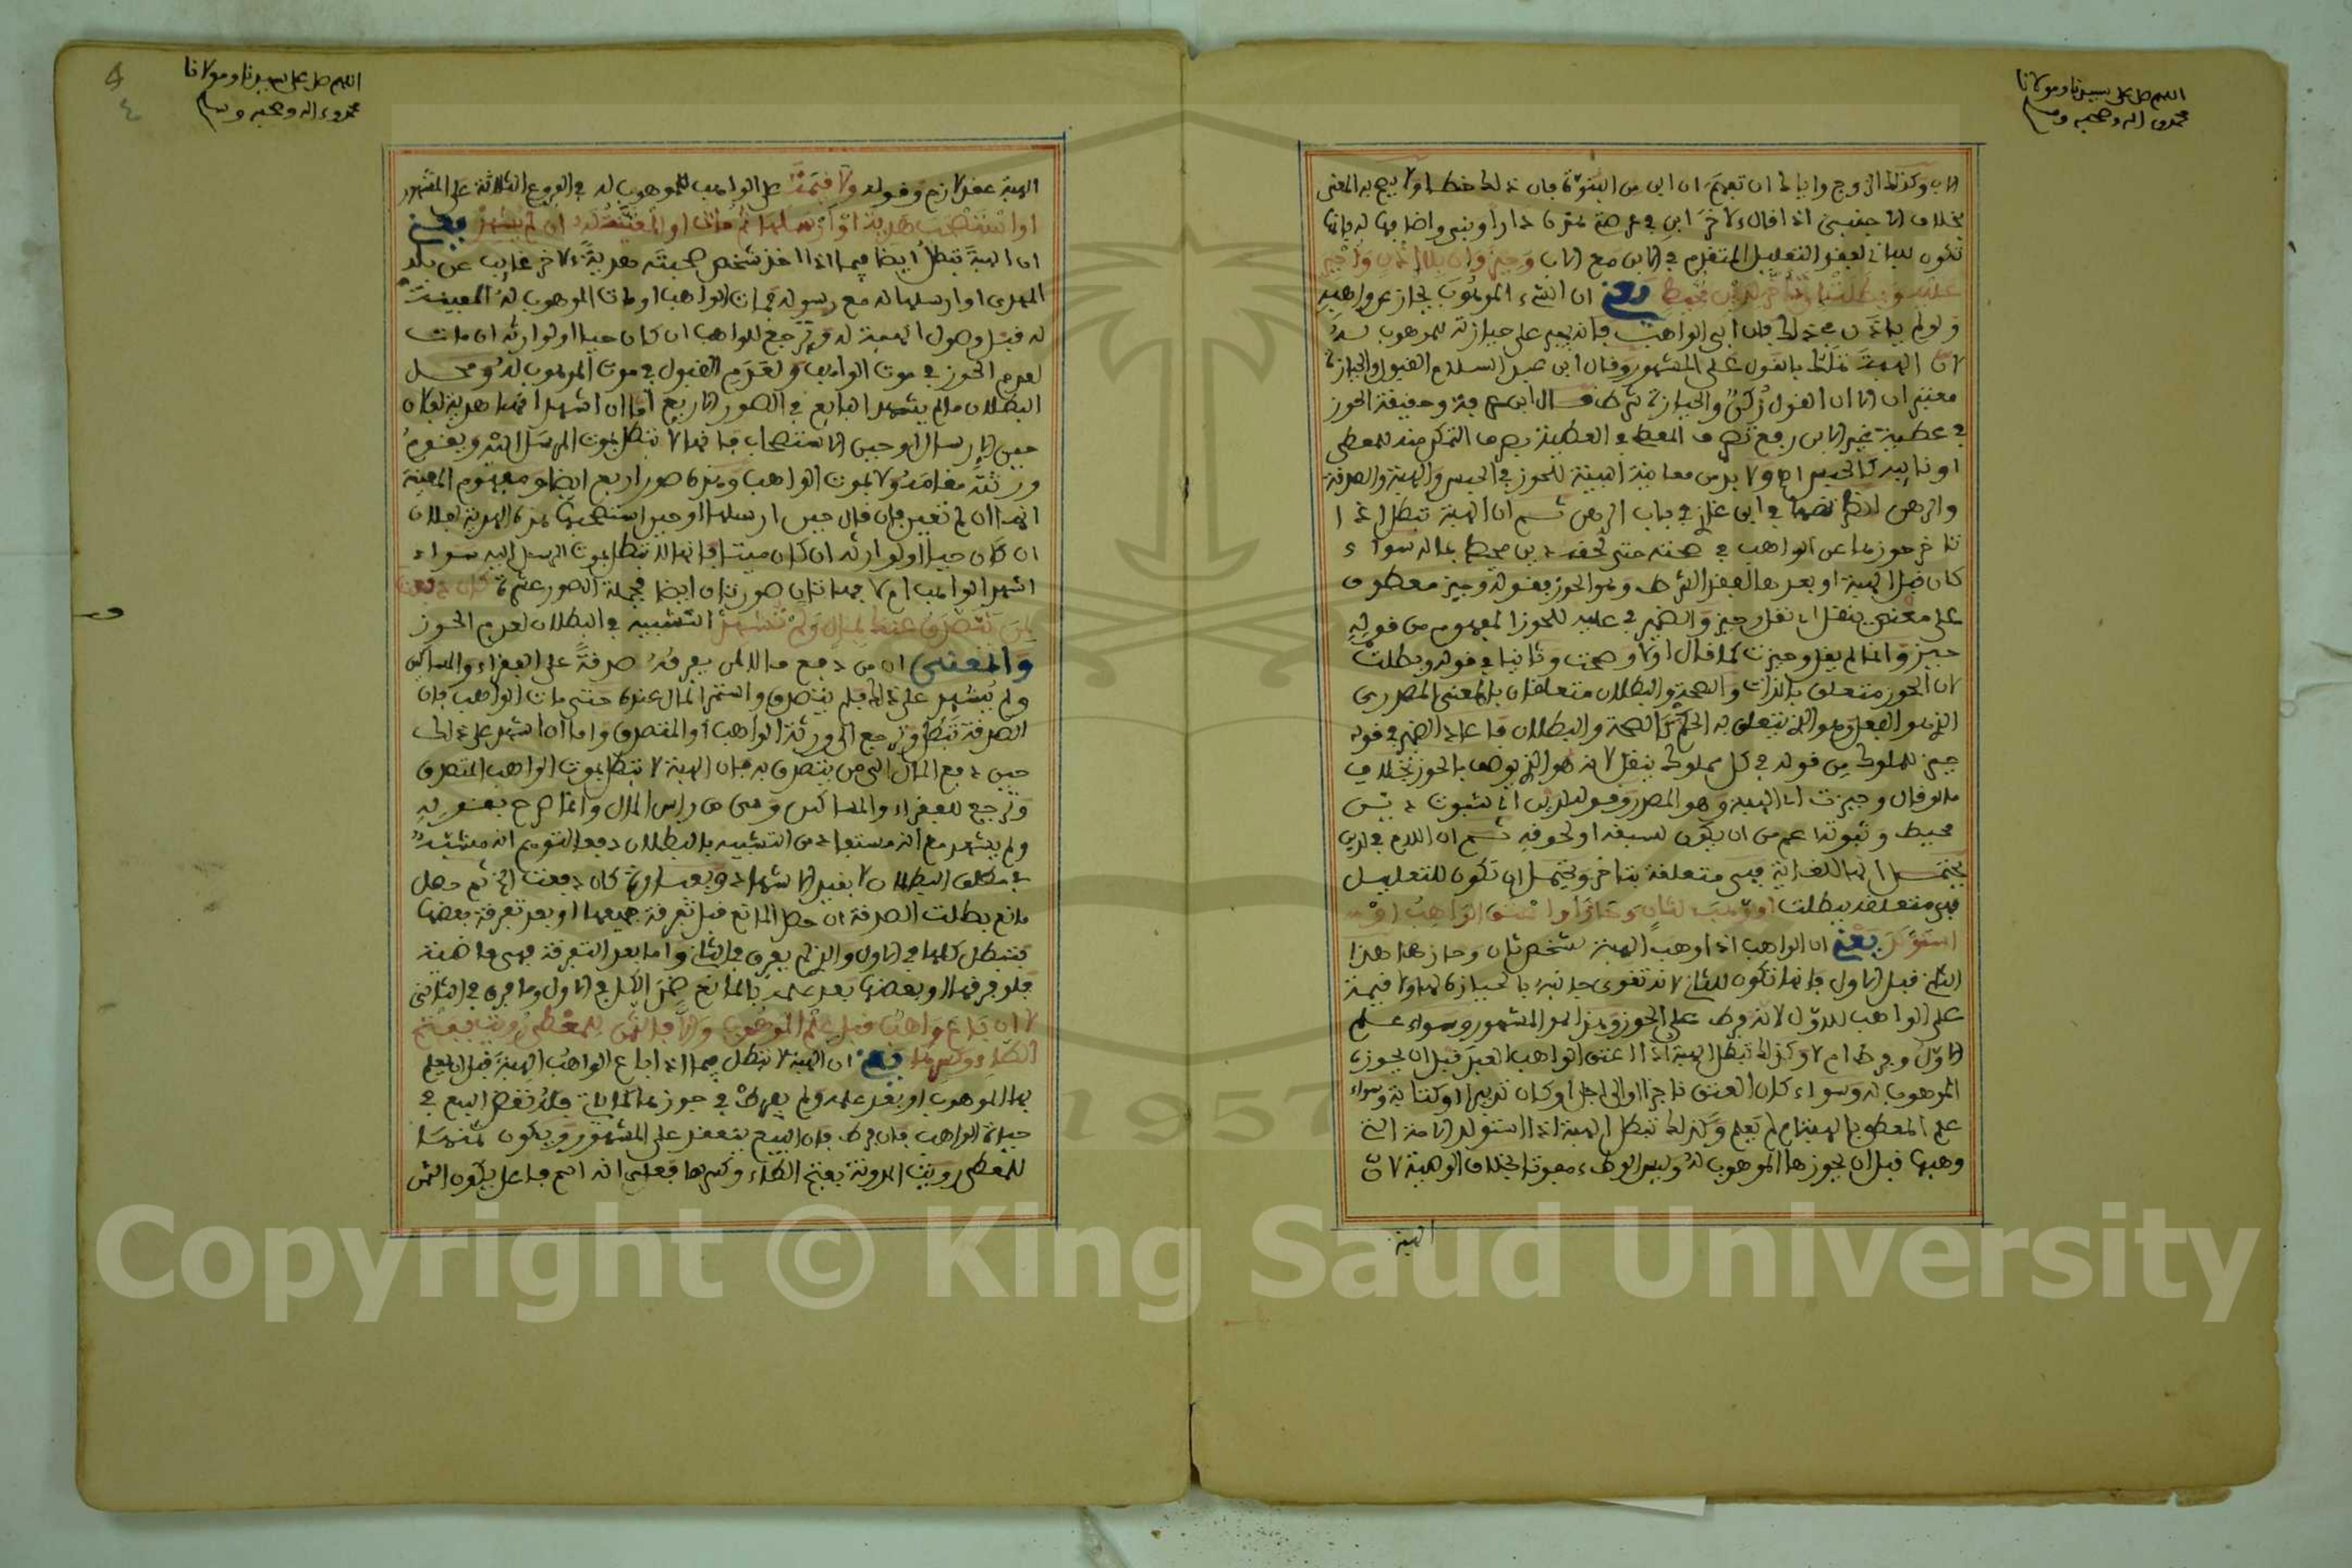 اللهم صل على سيدنا ومولانا
محمد وعلى اله وصحبه وسلم
الاب وكذلك الزوج واياك ان تفهم ان ابن من البنوة فان ذلك خطا ولا يصح به المعنى
بخلاف الاجنبي اذا قال لاخر ابن في عرصتي هذه دارا وبنى واضافها له فانها
تكون للباني لفقد التعليل المتقدم في الابن مع الاب وحيز وان بلا اذن واجبر
عليه وبطلت ان تاخر لدين محيط يعني ان الشيء الموهوب يحاز عن واهبه
ولو لم ياذن في ذلك فان ابى الواهب فانه يجبر على حيازته للموهوب له
لان الهبة تملك بالقول على المشهور وقال ابن عبد السلام القبول والحيازة
معتبران الا ان القبول ركن والحيازة شرط قال ابن عرفة وحقيقة الحوز
في عطية غير الابن رفع تصرف المعطي في العطية بصرف التمكن منه للمعطى
او نايبه كالحبس اه ولا بد من معاينة البينة للحوز في الحبس والهبة والصدقة
والرهن انظر نصها في ابن غازي في باب الرهن ثم ان الهبة تبطل اذا
تاخر حوزها عن الواهب في صحته حتى لحقه دين محيط بماله سواء
كان قبل الهبة او بعدها لفقد الشرط وهو الحوز فقوله وحيز معطوف
على معنى ينقل اي نقل وحيز والضمير في عليه للحوز المفهوم من قوله
حيز وانما لم يقل وحيزت كما قال اولا وصحت وثانيا في قوله وبطلت
لان الحوز متعلق بالذات والصحة والبطلان متعلقان بالمعنى المصدري
الذي هو الفعل وهو الذي يتعلق به الحكم كالصحة والبطلان فاعاد الضمير في قوله
حيز للمملوك من قوله في كل مملوك ينقل لانه هو الذي يوصف بالحوز بخلاف
ما لو قال وحيزت اي الهبة وهو المصدر وقوله لدين اي لثبوت دين
محيط وثبوته اعم من ان يكون لسبقه او لحوقه ثم ان اللام في لدين
يحتمل انها للغاية فهي متعلقة بتاخر ويحتمل ان تكون للتعليل
فهي متعلقة ببطلت او وهب لثان وحاز او اعتق الواهب او
استولد يعني ان الواهب اذا وهب الهبة لشخص ثان وحازها هذا
الثاني قبل الاول فانها تكون للثاني لانه تقوى جانبه بالحيازة لها ولا قيمة
على الواهب للاول لانه فرط على الحوز وهذا هو المشهور وسواء علم
الاول وفرط ام لا وكذلك تبطل الهبة اذا اعتق الواهب العبد قبل ان يحوزه
الموهوب له وسواء كان العتق ناجزا او الى اجل او كان تدبيرا او كتابة وسواء
علم المعطى بالهبة ام لم يعلم وكذلك تبطل الهبة اذا استولد الامة التي
وهبها قبل ان يحوزها الموهوب له وليس الوطء مفوتا بخلاف الوصية لان
الهبة
اللهم صل على سيدنا ومولانا
محمد وعلى اله وصحبه وسلم
٤
الهبة عقد لازم وقوله ولا قيمة على الواهب للموهوب له في الفروع الثلاثة على المشهور
او استصحب هدية او ارسلها ثم مات او المعينة له ان لم يشهد يعني
ان الهبة تبطل ايضا فيما اذا اخذ شخص صحبته هدية لاخر غايب عن بلد
المهدي او ارسلها له مع رسوله فمات الواهب او مات الموهوب له المعينة
له قبل وصول الهبة له وترجع للواهب ان كان حيا او لوارثه ان مات
لعدم الحوز في موت الواهب ولعدم القبول في موت الموهوب له ومحل
البطلان ما لم يشهد الدافع في الصور الاربع اما ان اشهد انها هدية لفلان
حين الارسال او حين الاستصحاب فانها لا تبطل بموت المرسل اليه ويقوم
ورثته مقامه ولا بموت الواهب وهذه صور اربع ايضا ومفهوم المعينة
انها ان لم تعين بان قال حين ارسلها او حين استصحبها هذه الهدية لفلان
ان كان حيا او لوارثه ان كان ميتا فانها لا تبطل بموت المرسل اليه سواء
اشهد الواهب ام لا فهاتان صورتان ايضا فجملة الصور عشرة كان دفعت
لمن يتصدق عنك بمال ولم تشهد التشبيه في البطلان لعدم الحوز
والمعنى ان من دفع مالا لمن يفرقه صدقة على الفقراء والمساكين
ولم يشهد على ذلك فلم يتصدق واستمر المال عنده حتى مات الواهب فان
الصدقة تبطل وترجع الى ورثة الواهب او المتصدق واما ان اشهد على ذلك
حين دفع المال الى من يتصدق به فان الهبة لا تبطل بموت الواهب المتصدق
وترجع للفقراء والمساكين وهي من راس المال وانما صرح بقوله
ولم يشهد مع انه مستفاد من التشبيه بالبطلان دفعا لتوهم انه مشبه
في مطلق البطلان لا بقيد الاشهاد وبعبارة كان دفعت الخ ثم حصل
مانع بطلت الصدقة ان حصل المانع قبل تفرقة جميعها او بعد تفرقة بعضها
فتبطل كلها في الاول والذي لم يفرق في الثاني واما بعد التفرقة فهي ماضية
فلو فرقها او بعضها بعد علمه بالمانع ضمن الكل في الاول وما فرق في الثاني
لا ان باع واهب قبل علم الموهوب والا فالثمن للمعطى رويت بفتح
الطاء وكسرها يعني ان الهبة لا تبطل فيما اذا باع الواهب الهبة قبل ان يعلم
بها الموهوب او بعد علمه ولم يفرط في حوزها لكن له نقض البيع في
حياة الواهب فان فرط فان البيع ينعقد على المشهور ويكون ثمنها
للمعطى رويت المدونة بفتح الطاء وكسرها فعلى انه اسم فاعل يكون الثمن
Copyright © King Saud University
1957